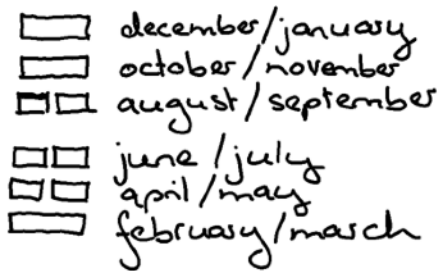 december/january
october/november
august/september
june/july
april/may
february/march